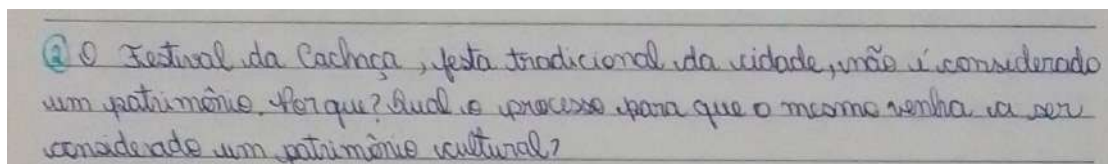 ② O Festival da Cachaça, festa tradicional da cidade, não é considerado
um patrimônio. Por que? Qual o processo para que o mesmo venha a ser
considerado um patrimônio cultural?